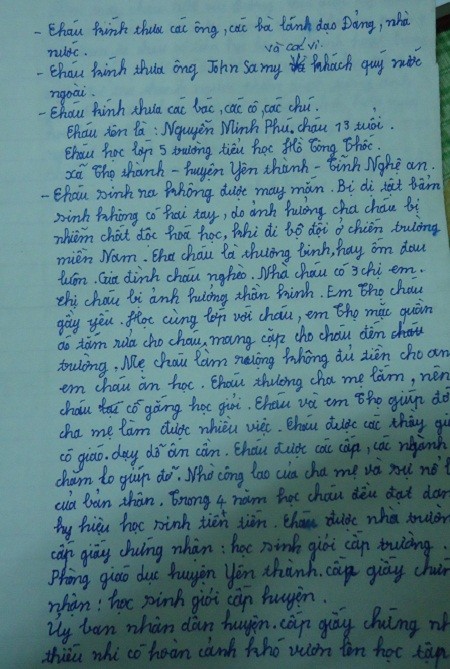 - Cháu kính thưa các ông, các bà lãnh đạo Đảng, nhà
nước.
và các vị
- Cháu kính thưa ông John Samy khách quý nước
ngoài.
- Cháu kính thưa các bác, các cô, các chú.
Cháu tên là: Nguyễn Minh Phú. cháu 13 tuổi.
Cháu học lớp 5 trường tiểu học Hồ Tông Thốc.
Xã Thọ thành - huyện Yên thành - Tỉnh Nghệ an.
- Cháu sinh ra không được may mắn. Bị dị tật bẩm
sinh không có hai tay, do ảnh hưởng cha cháu bị
nhiễm chất độc hoá học, khi đi bộ đội ở chiến trường
miền Nam. Cha cháu là thương binh, hay ốm đau
luôn. Gia đình cháu nghèo. Nhà cháu có 3 chị em.
chị cháu bị ảnh hưởng thần kinh. Em Thọ cháu
gầy yếu. Học cùng lớp với cháu, em Thọ mặc quần
áo tắm rửa cho cháu, mang cặp cho cháu đến
trường. Mẹ cháu làm ruộng không đủ tiền cho an
em cháu ăn học. Cháu thương cha mẹ lắm, nên
cháu cố gắng học giỏi. Cháu và em Thọ giúp đỡ
cha mẹ làm được nhiều việc. Cháu được các thầy gi
cô giáo. dạy dỗ ân cần. Cháu được các cấp, các ngành
chăm lo giúp đỡ. Nhờ công lao của cha mẹ và sự nỗ l
của bản thân. Trong 4 năm học cháu đều đạt dan
hụ hiệu học sinh tiên tiến. Cháu được nhà trườn
cấp giấy chứng nhận: học sinh giỏi cấp trường.
Phòng giáo dục huyện Yên thành. cấp giấy chứn
nhận: học sinh giỏi cấp huyện.
Ủy ban nhân dân huyện. cấp giấy chứng nh
thiếu nhi có hoàn cảnh khó vươn lên học tập